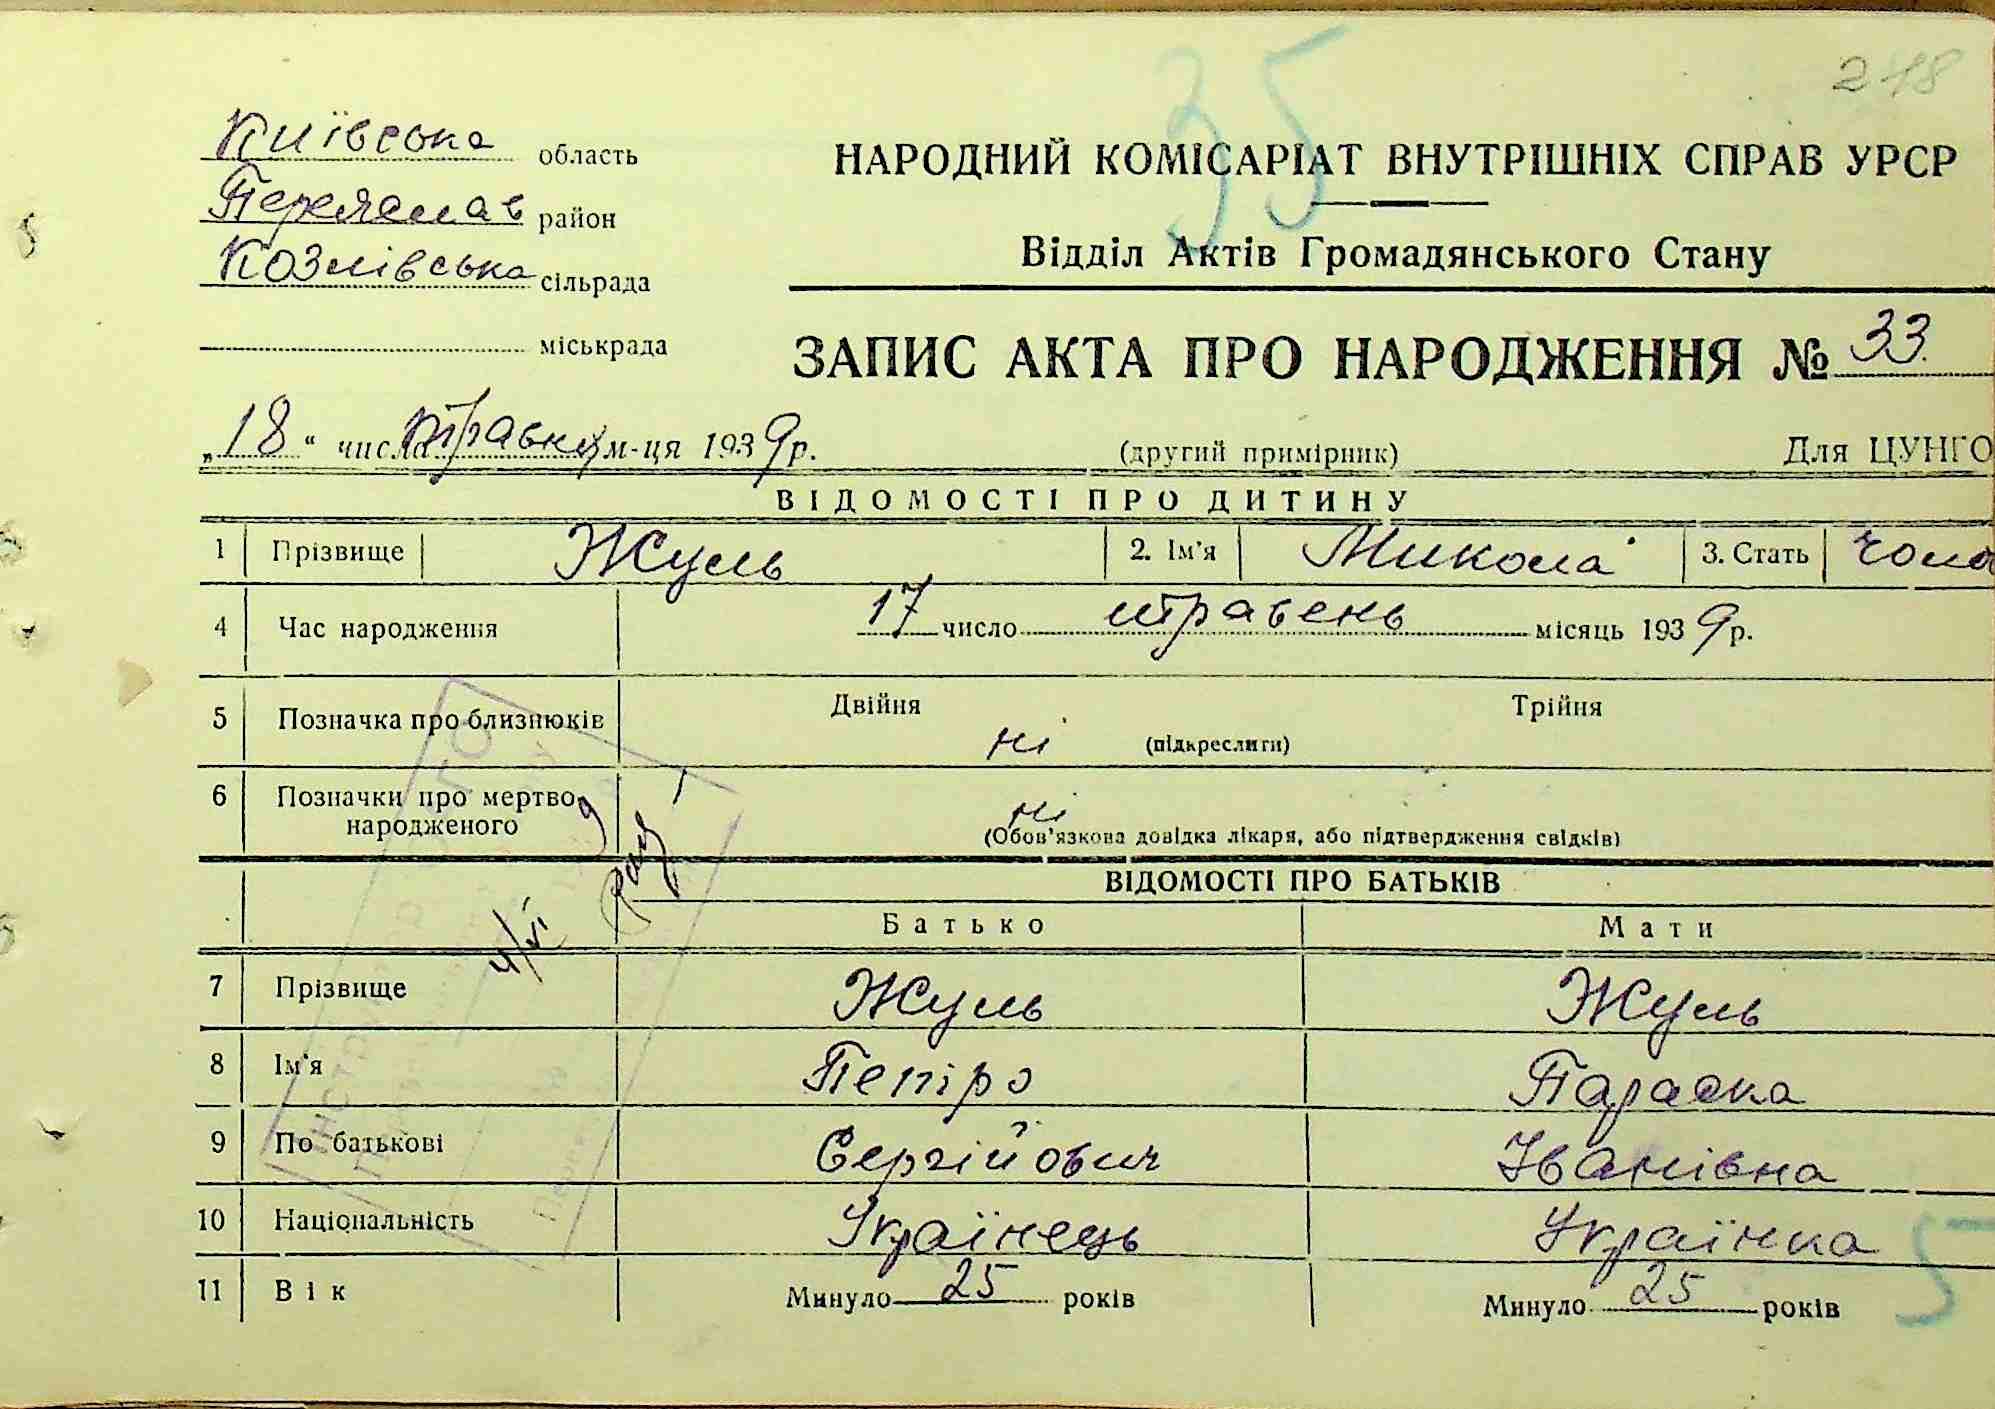 35
278
Київська область
НАРОДНИЙ КОМІСАРІАТ ВНУТРІШНІХ СПРАВ УРСР
Переяслав район
Відділ Актів Громадянського Стану
Козлівська сільрада
міськрада
ЗАПИС АКТА ПРО НАРОДЖЕННЯ № 33
„18“ числа травня м-ця 1939 р. (другий примірник) Для ЦУНГО
ВІДОМОСТІ ПРО ДИТИНУ
1 Прізвище Жуль 2. Ім'я Микола 3. Стать чоло
4 Час народження 17 число травень місяць 1939 р.
5 Позначка про близнюків Двійня ні (підкреслити) Трійня
6 Позначки про мертвонародженого ні
(Обов'язкова довідка лікаря, або підтвердження свідків)
ВІДОМОСТІ ПРО БАТЬКІВ
Батько Мати
4/VI
7 Прізвище Жуль Жуль
8 Ім'я Петро Параска
9 По батькові Сергійович Іванівна
10 Національність Українець Українка
11 Вік Минуло 25 років Минуло 25 років
5